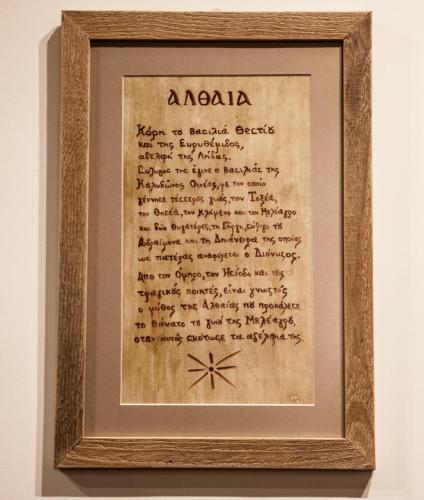 ΑΛΘΑΙΑ
Κόρη του βασιλιά Θεστίου
και της Ευρυθέμιδος,
αδελφή της Λήδας.
Σύζυγός της έγινε ο βασιλιάς της
Καλυδώνος Οινέας, με τον οποίο
γέννησε τέσσερος γιούς, τον Τοξέα,
τον Θησέα, τον Κλημένο και τον Μελέαγρο
και δύο θυγατέρες, τη Γόργη, σύζυγο του
Ανδραίμονα και τη Δηιάνειρα της οποίας
ως πατέρας αναφέρεται ο Διόνυσος.
Απο τον Όμηρο, τον Ησίοδο και τους
τραγικούς ποιητές, είναι γνωστός
ο μύθος της Αλθαίας που προκάλεσε
το θάνατο του γιού της Μελέαγρου,
οταν αυτός σκότωσε τα αδέλφια της.